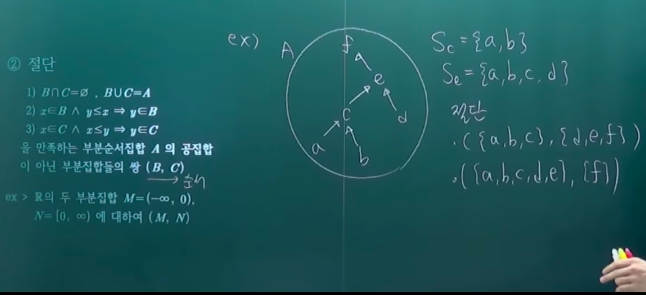 ② 절단
1) B∩C=∅ , B∪C=A
2) x∈B ∧ y≤x ⇒ y∈B
3) x∈C ∧ x≤y ⇒ y∈C
을 만족하는 부분순서집합 A 의 공집합
이 아닌 부분집합들의 쌍 (B, C)
→ 순서
ex > ℝ의 두 부분집합 M=(-∞, 0),
N=[0, ∞) 에 대하여 (M, N)
ex)
A
f
e
c
d
a
b
Sc = {a,b}
Se = {a,b,c,d}
절단
. ({a,b,c}, {d,e,f})
. ({a,b,c,d,e}, {f})